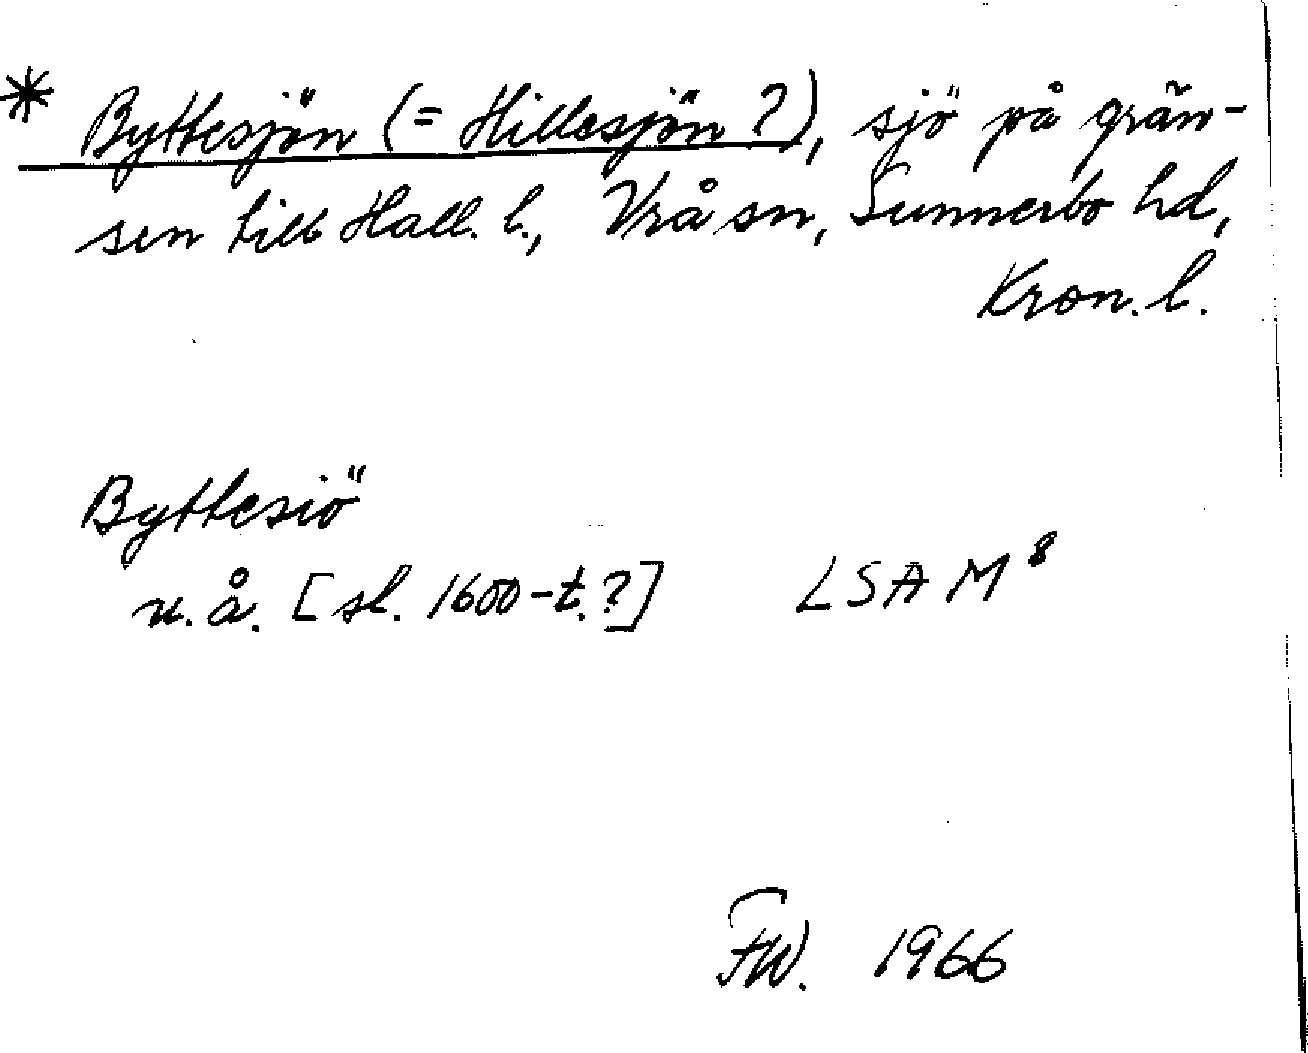 * Byttesjön (= Hillesjön ?), sjö på grän-
sen till Hall. l., Vrå sn, Sunnerbo hd,
Kron. l.
Byttesiö
u. å. [sl. 1600-t.?] LSA M⁸
FW. 1966